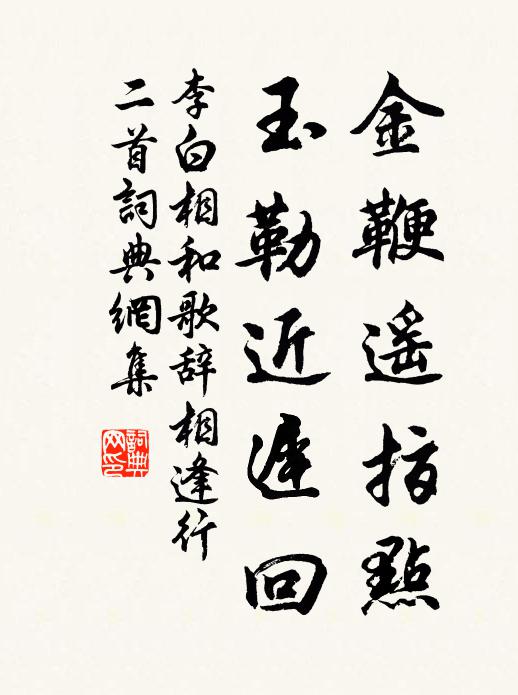 金鞭遥指點
玉勒近遲回
李白相和歌辞相逢行
二首詞典網集
詞典网印